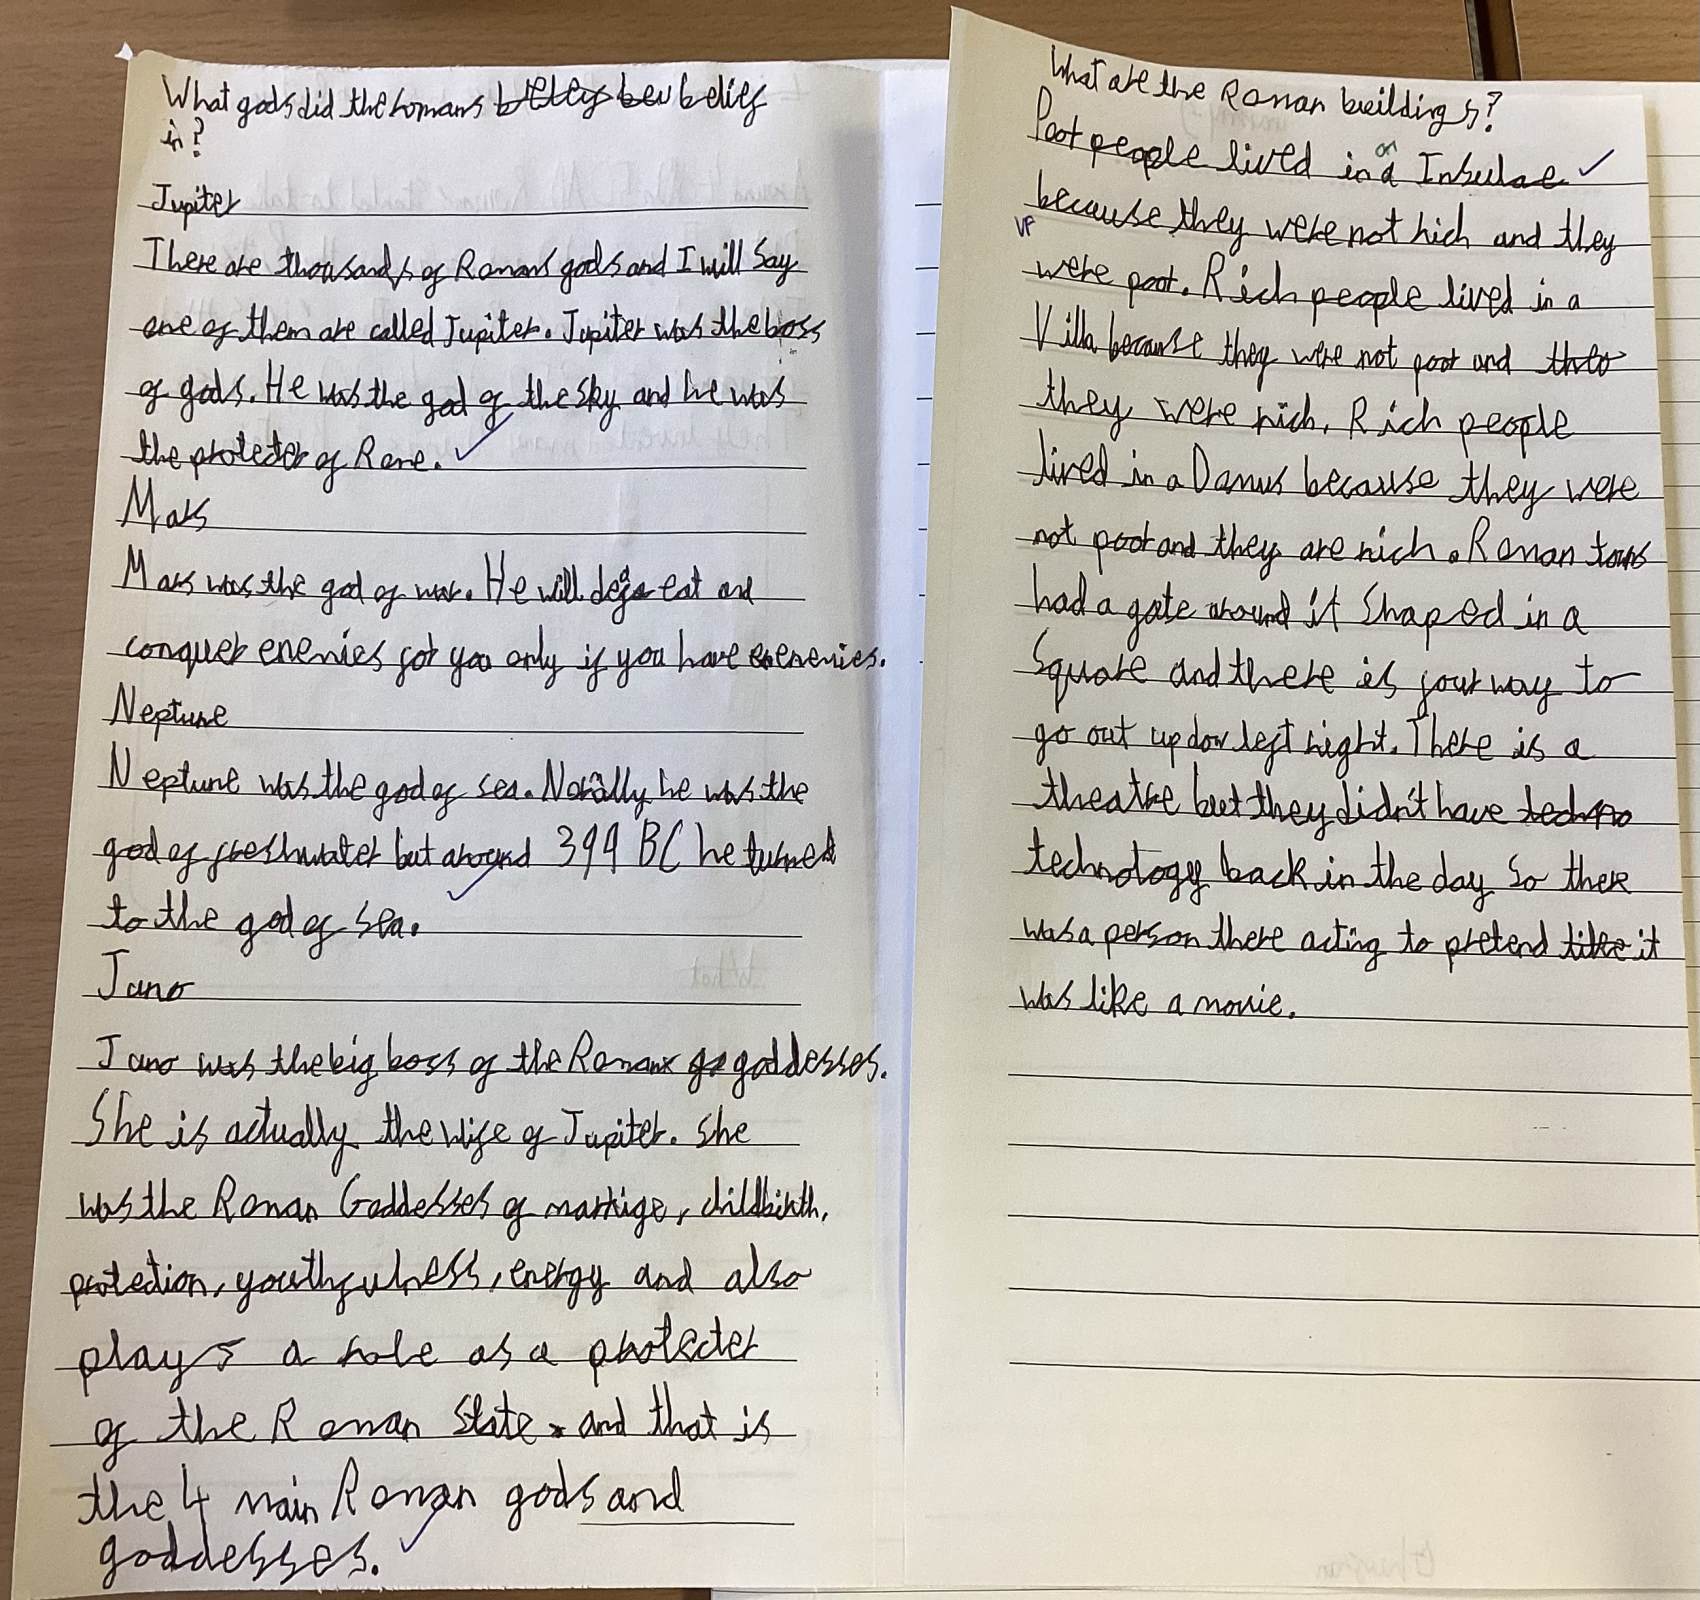 What gods did the romans beleys beu belief
in?
Jupiter
There are thousands of Romans gods and I will say
one of them are called Jupiter. Jupiter was the boss
of gods. He was the god of the sky and he was
the protecter of Rome.
Mars
Mars was the god of war. He will defeat and
conquer enemies for you only if you have enemies.
Neptune
Neptune was the god of sea. Norally he was the
god of freshwater but around 399 BC he turned
to the god of sea.
Juno
Juno was the big boss of the Roman go goddesses.
She is actually the wife of Jupiter. She
was the Roman Goddesses of marrige, childbirth,
protection, youthfulness, energy and also
plays a role as a protecter
of the Roman State. and that is
the 4 main Roman gods and
goddesses.
What are the Roman buildings?
Poor people lived in a an Insulae
because they were not rich and they
VF
were poor. Rich people lived in a
Villa because they were not poor and
they were rich. Rich people
lived in a Domus because they were
not poor and they are rich. Roman towns
had a gate around it Shaped in a
Square and there is four way to
go out up dow left right. There is a
theatre but they didn't have techno
technology back in the day so there
was a person there acting to pretend like it
was like a movie.